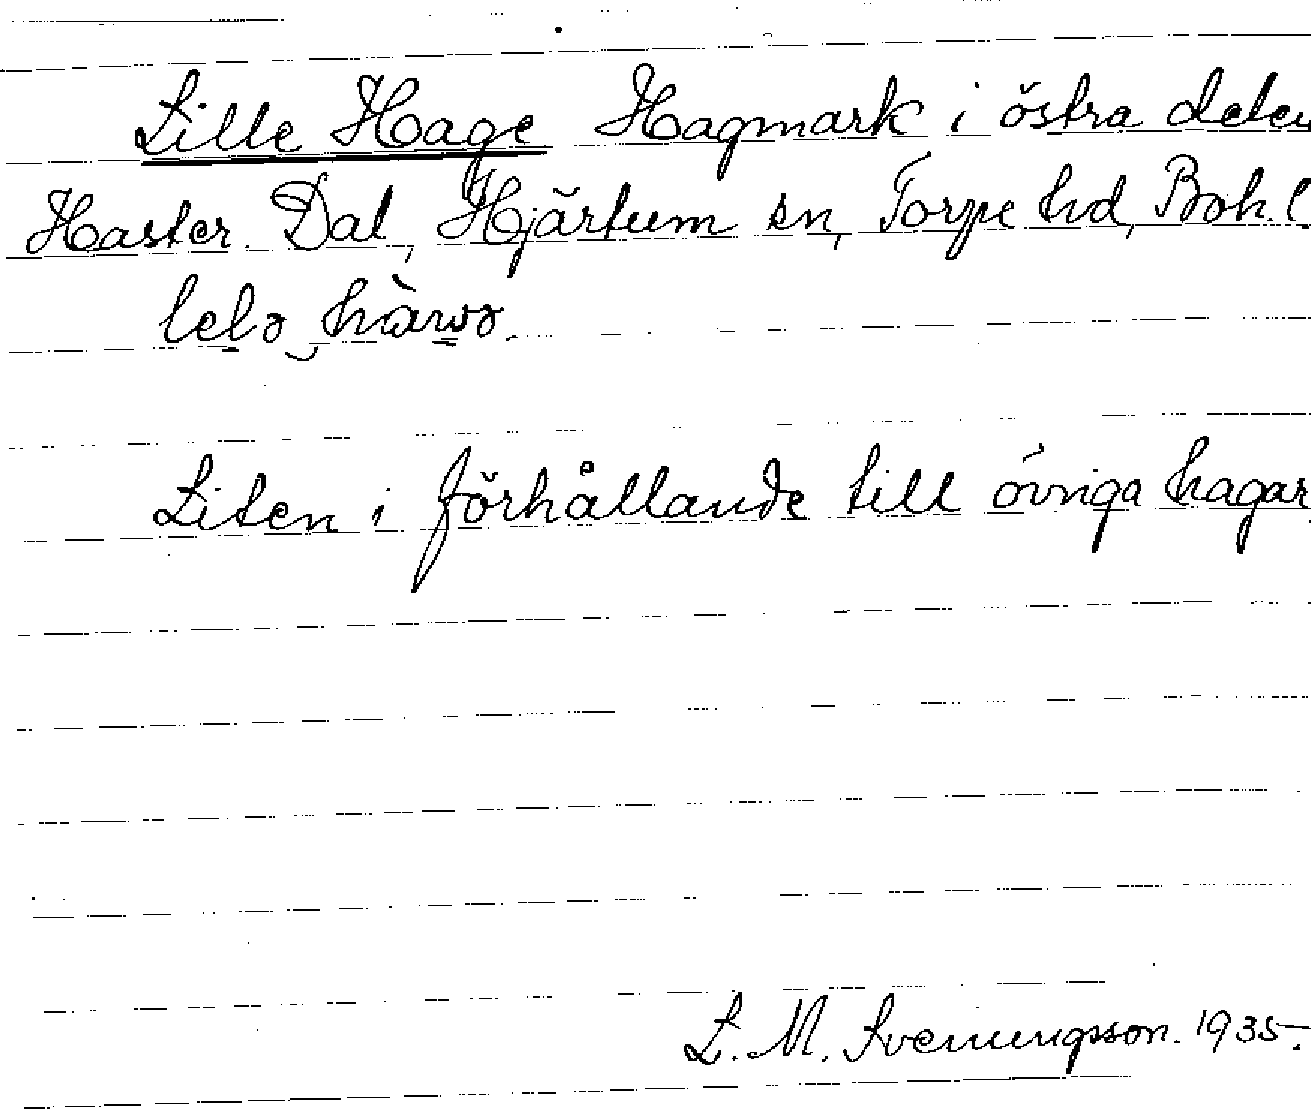 Lille Hage Hagmark i östra delen
Haster Dal, Hjärtum sn, Torpe hd, Boh. l
lelə hàwə.
Liten i förhållande till övriga hagar
L. M. Svenungsson. 1935.